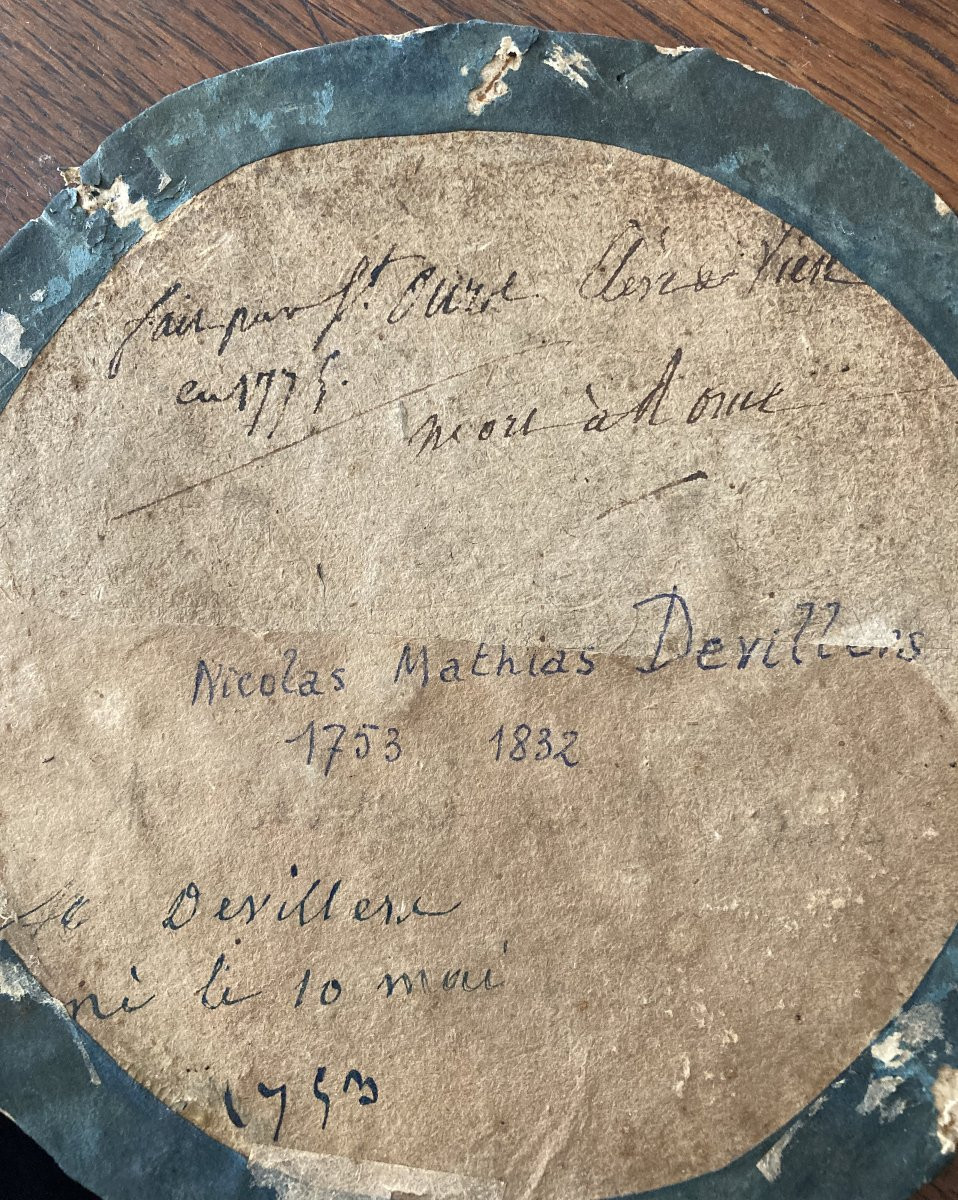 fait par St. Ours Elève de Vien
en 1775.
mort à Rome
Nicolas Mathias Devillers
1753 1832
Devillers
né le 10 mai
1753